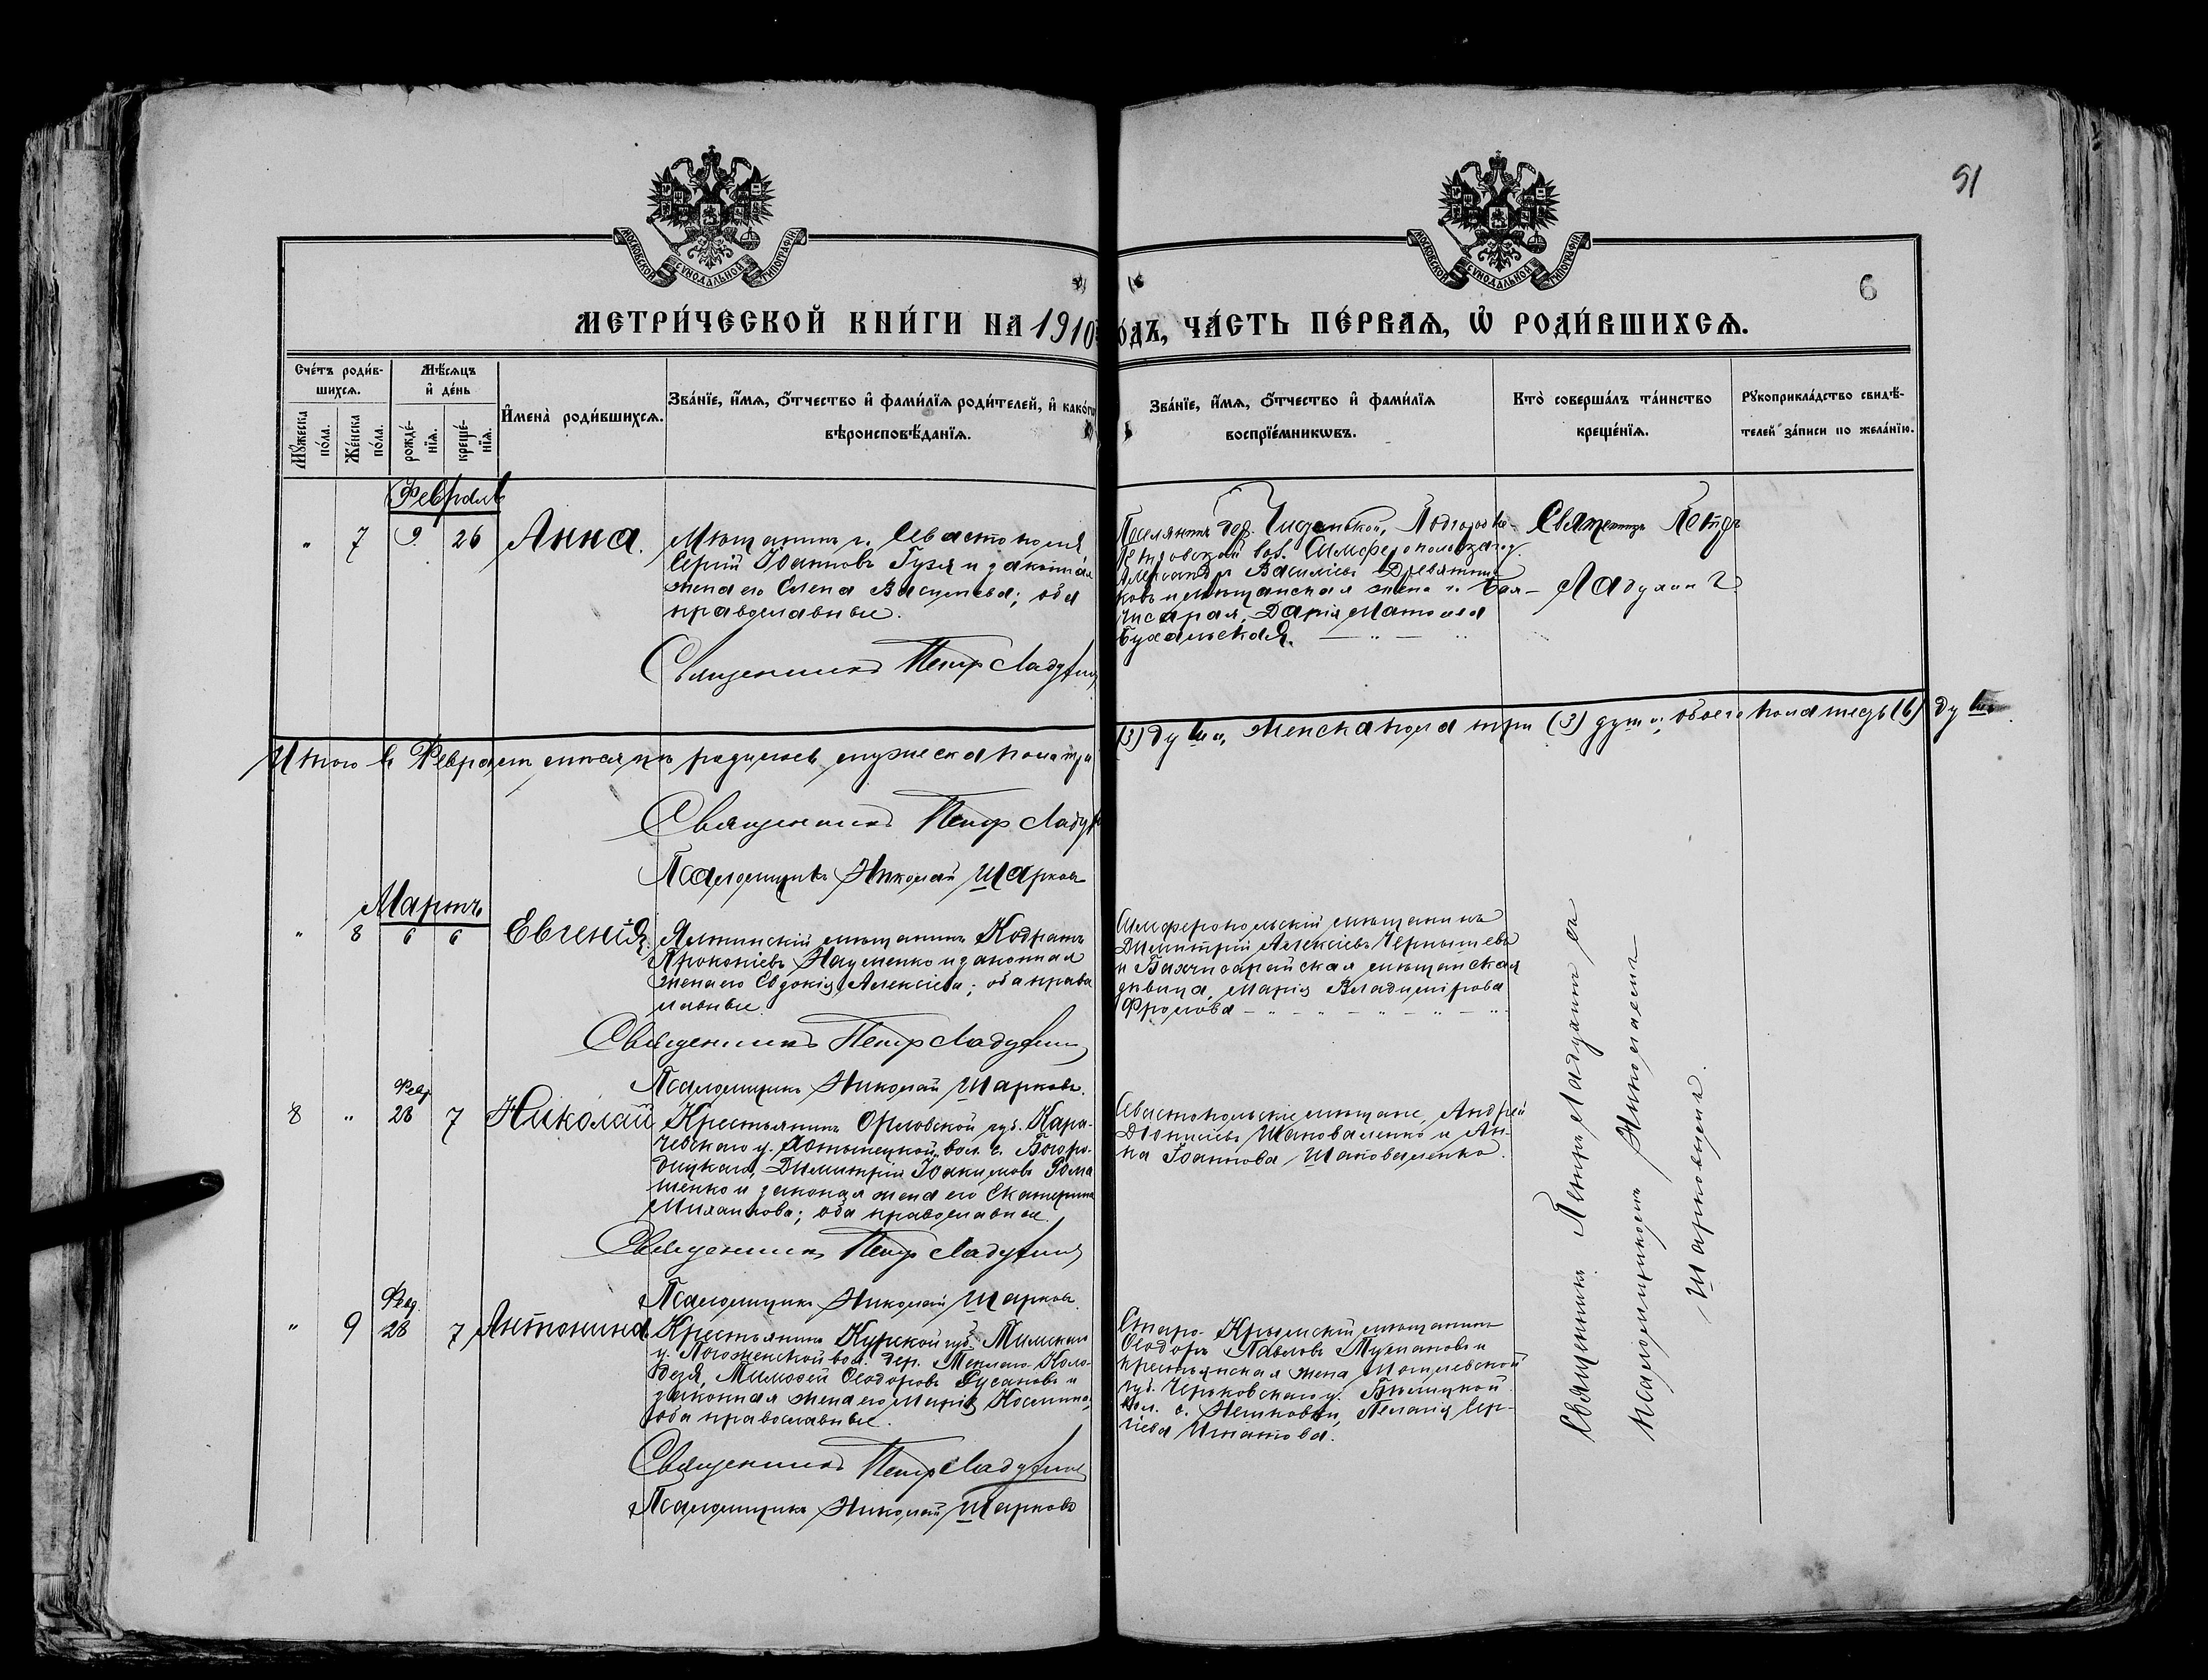 91
6
МОСКОВСКОЙ СУНОДАЛЬНОЙ ТИПОГРАФІИ
МОСКОВСКОЙ СУНОДАЛЬНОЙ ТИПОГРАФІИ
МЕТРИ́ЧЕСКОЙ КНИ́ГИ НА 1910 ГО́ДЪ, ЧА́СТЬ ПЕ́РВАЯ, Ѡ РОДИ́ВШИХСЯ.
Сче́тъ роди́в-
шихся.
Мꙋ́жеска
по́ла.
Же́нска
по́ла.
Мѣ́сяцъ
и҆ де́нь
рожде́-
нїя.
креще́-
нїя.
И҆мена̀ роди́вшихся.
Зва́нїе, и҆́мя, ѻ҆́тчество и҆ фами́лїя роди́телей, и҆ како́гѡ
вѣроисповѣ́данїя.
Зва́нїе, и҆́мя, ѻ҆́тчество и҆ фами́лїя
воспрїе́мникѡвъ.
Кто̀ соверша́лъ та́инство
креще́нїя.
Рꙋкоприкла́дство свидѣ́-
телей за́писи по жела́нїю.
Февраль
" 7 9 26 Анна.
Мѣщанинъ г. Севастополя
Сергій Іоанновъ Гузя и законная
жена его Елена Васильева; оба
православные.
Священникъ Петръ Ладухинъ
Поселянинъ дер. Подгородне-
Петровской вол. Симферопольскаго у.
Александръ Василіевъ Древятни-
ковъ и мѣщанская жена г. Бах-
чисарая, Дарія Матѳеева
Бухальская.
Священникъ Петръ
Ладухинъ
Итого въ Февралѣ мѣсяцѣ родилось мужеска пола три (3) души, женска пола три (3) души; обоего пола шесть (6) душъ
Священникъ Петръ Ладухинъ
Псаломщикъ Николай Шарковъ
Мартъ
" 8 6 6 Евгенія.
Ялтинскій мѣщанинъ Кодратъ
Прокопіевъ Науменко и законная
жена его Евдокія Алексіева; оба право
славные.
Священникъ Петръ Ладухинъ
Псаломщикъ Николай Шарковъ.
Симферопольскій мѣщанинъ
Димитрій Алексіевъ Чернышевъ
и Бахчисарайская мѣщанская
дѣвица, Марія Владимірова
Фролова
Февр
8 " 28 7 Николай
Крестьянинъ Орловской губ. Кара-
чевскаго у. вол. с. Богоро-
дицкаго, Димитрій Іоакимовъ Рома
шенко и законная жена его Екатерина
Михаилова; оба православные.
Священникъ Петръ Ладухинъ
Псаломщикъ Николай Шарковъ
Севастопольскіе мѣщане, Андрей
Діонисіевъ Шаповаленко и Ан-
на Іоаннова Шаповаленко.
Фев.
" 9 28 7 Антонина
Крестьянинъ Курской губ. Тимскаго
у. вол. дер. Теплаго Коло-
дезя, Тимоѳей Ѳеодоровъ Русановъ и
законная жена его Марія Космина,
оба православные.
Священникъ Петръ Ладухинъ
Псаломщикъ Николай Шарковъ
Старо-Крымскій мѣщанинъ
Ѳеодоръ Павловъ и
крестьянская жена Могилевской
губ. Чериковскаго у.
вол. с. Пелагія Сер-
гіева Игнатова.
Священникъ Петръ Ладухинъ съ
псаломщикомъ Николаемъ
Шарковымъ.